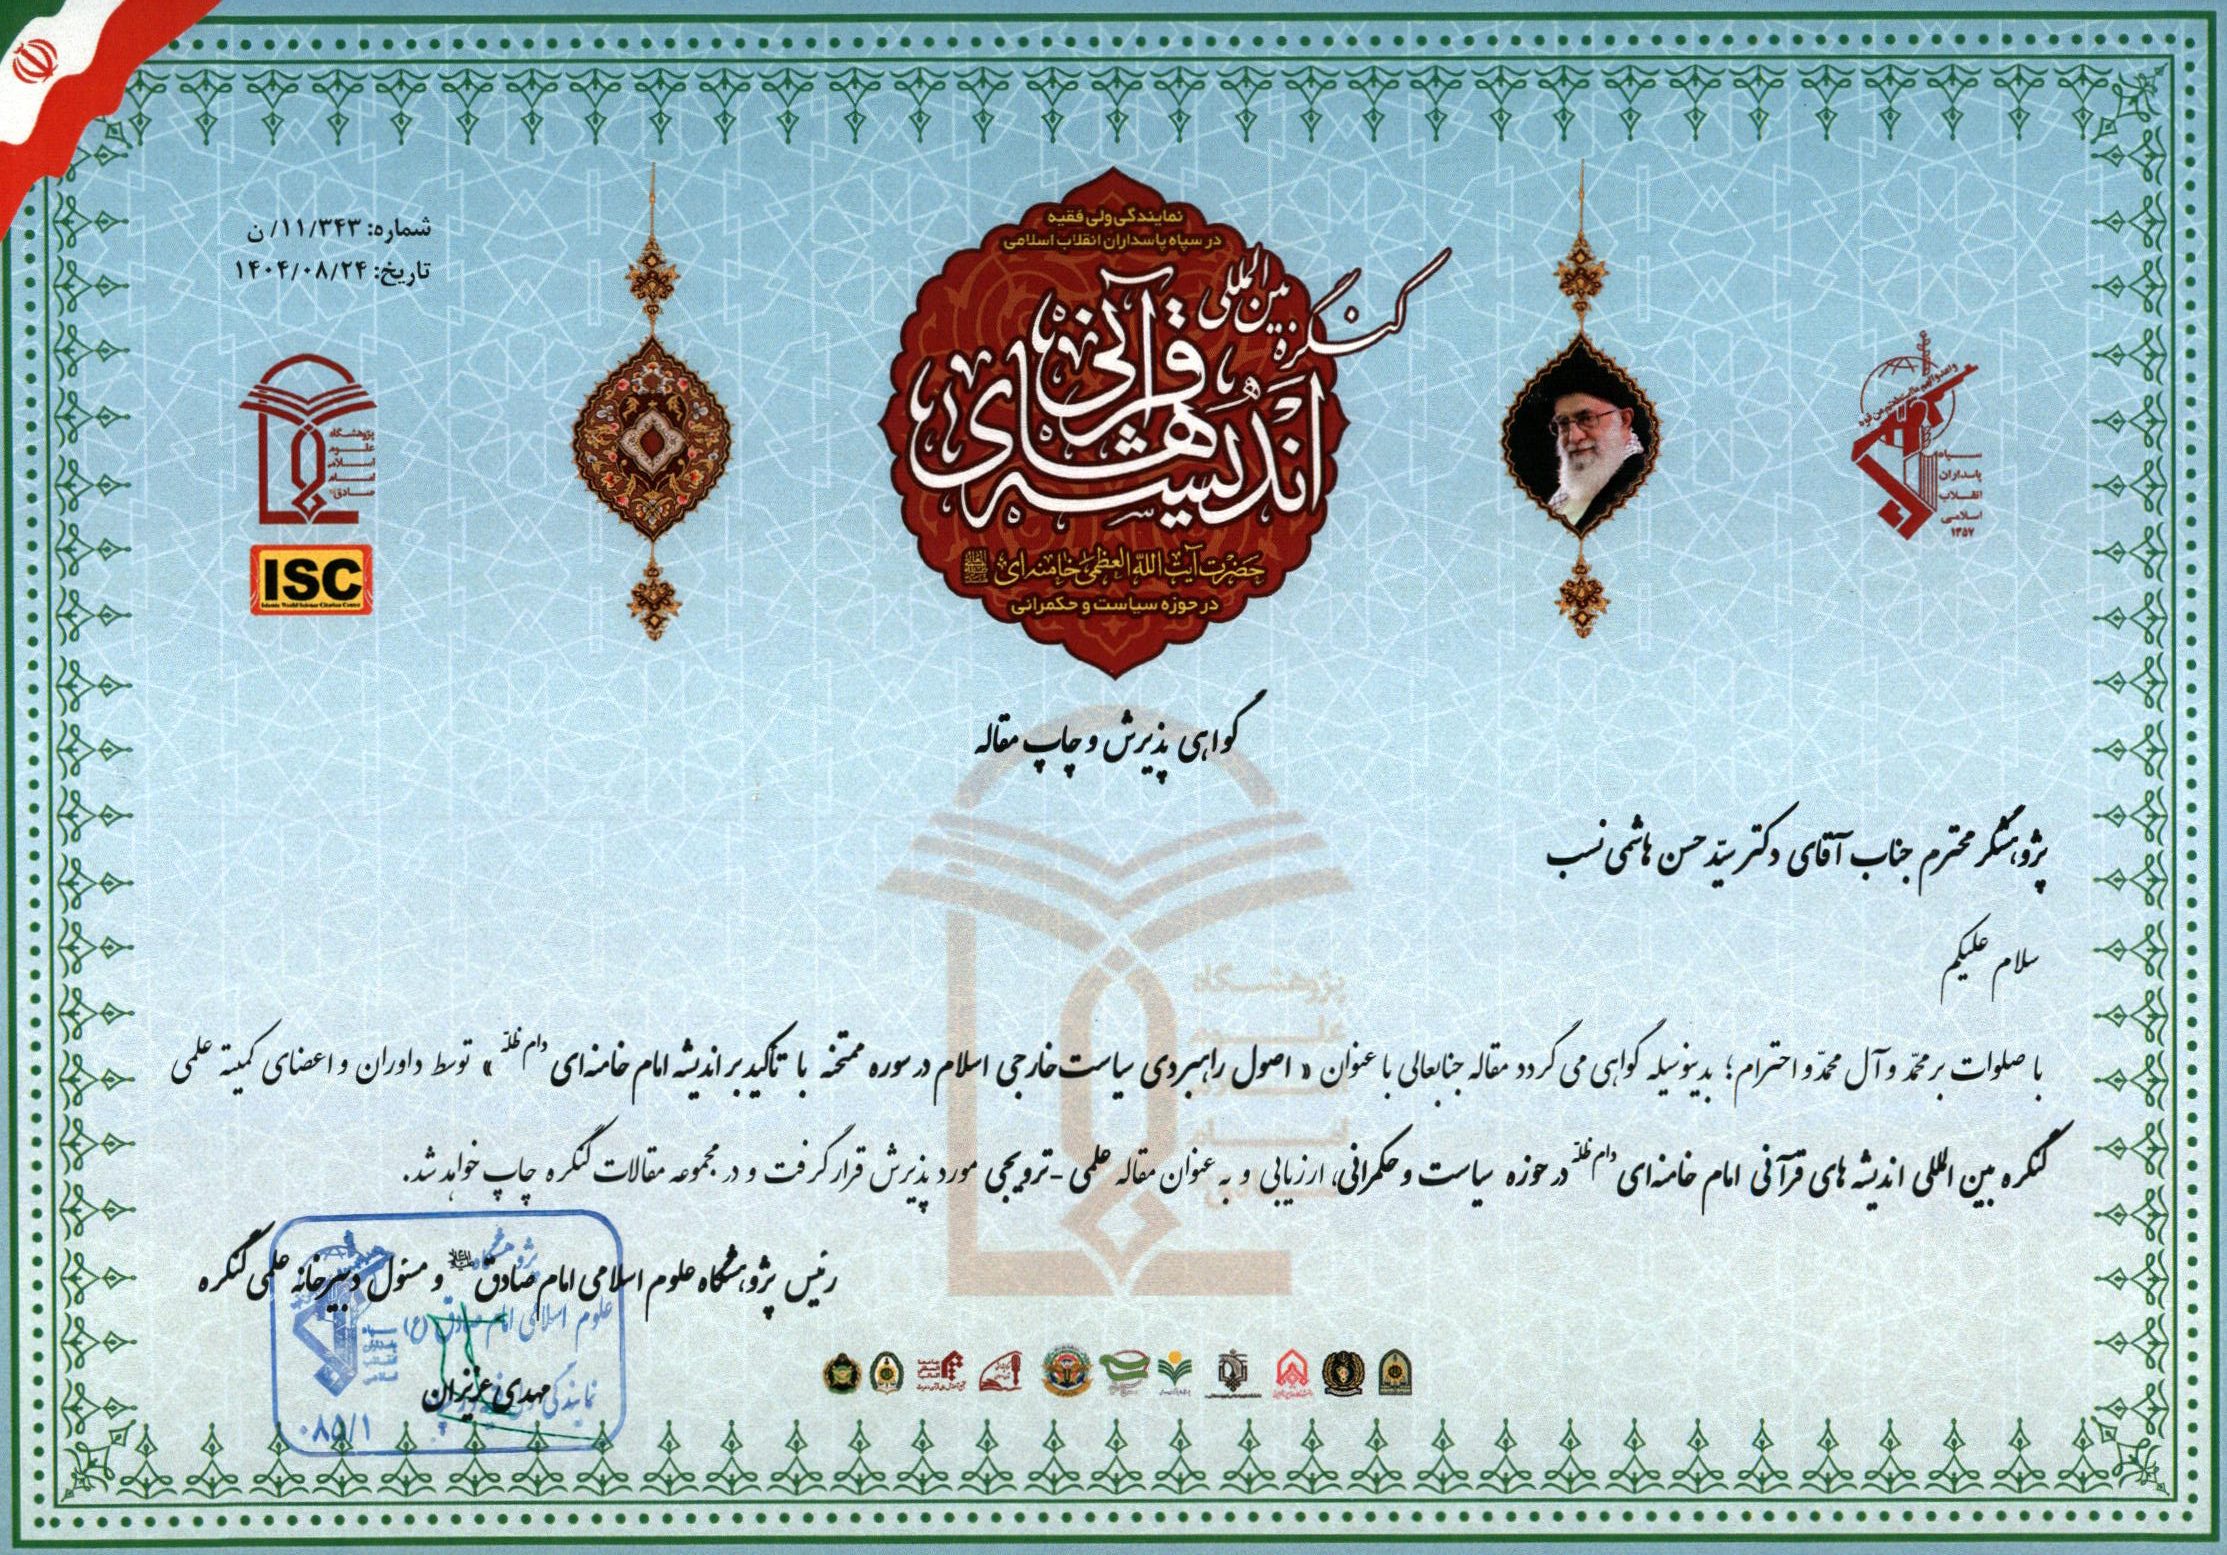 شماره: ۱۱/۳۴۳/ ن
تاریخ: ۱۴۰۴/۰۸/۲۴
نمایندگی ولی فقیه
در سپاه پاسداران انقلاب اسلامی
کنگره بین المللی
اندیشه های قرآنی
حضرت آیت الله العظمی خامنه ای
در حوزه سیاست و حکمرانی
سپاه
پاسداران
انقلاب
اسلامی
۱۳۵۷
پژوهشگاه
علوم
اسلامی
امام
صادق
ISC
Islamic World Science Citation Center
گواهی پذیرش و چاپ مقاله
پژوهشگر محترم جناب آقای دکتر سیّد حسن هاشمی نسب
سلام علیکم
با صلوات بر محمّد و آل محمّد و احترام؛ بدینوسیله گواهی می گردد مقاله جنابعالی با عنوان « اصول راهبردی سیاست خارجی اسلام در سوره ممتحنه با تأکید بر اندیشه امام خامنه ای دام ظلّه » توسط داوران و اعضای کمیته علمی
کنگره بین المللی اندیشه های قرآنی امام خامنه ای دام ظلّه در حوزه سیاست و حکمرانی، ارزیابی و به عنوان مقاله علمی - ترویجی مورد پذیرش قرار گرفت و در مجموعه مقالات کنگره چاپ خواهد شد.
رئیس پژوهشگاه علوم اسلامی امام صادق و مسئول دبیرخانه علمی کنگره
پژوهشگاه
علوم اسلامی امام صادق (ع)
مهدی عزیزان
۰۸۵/۱